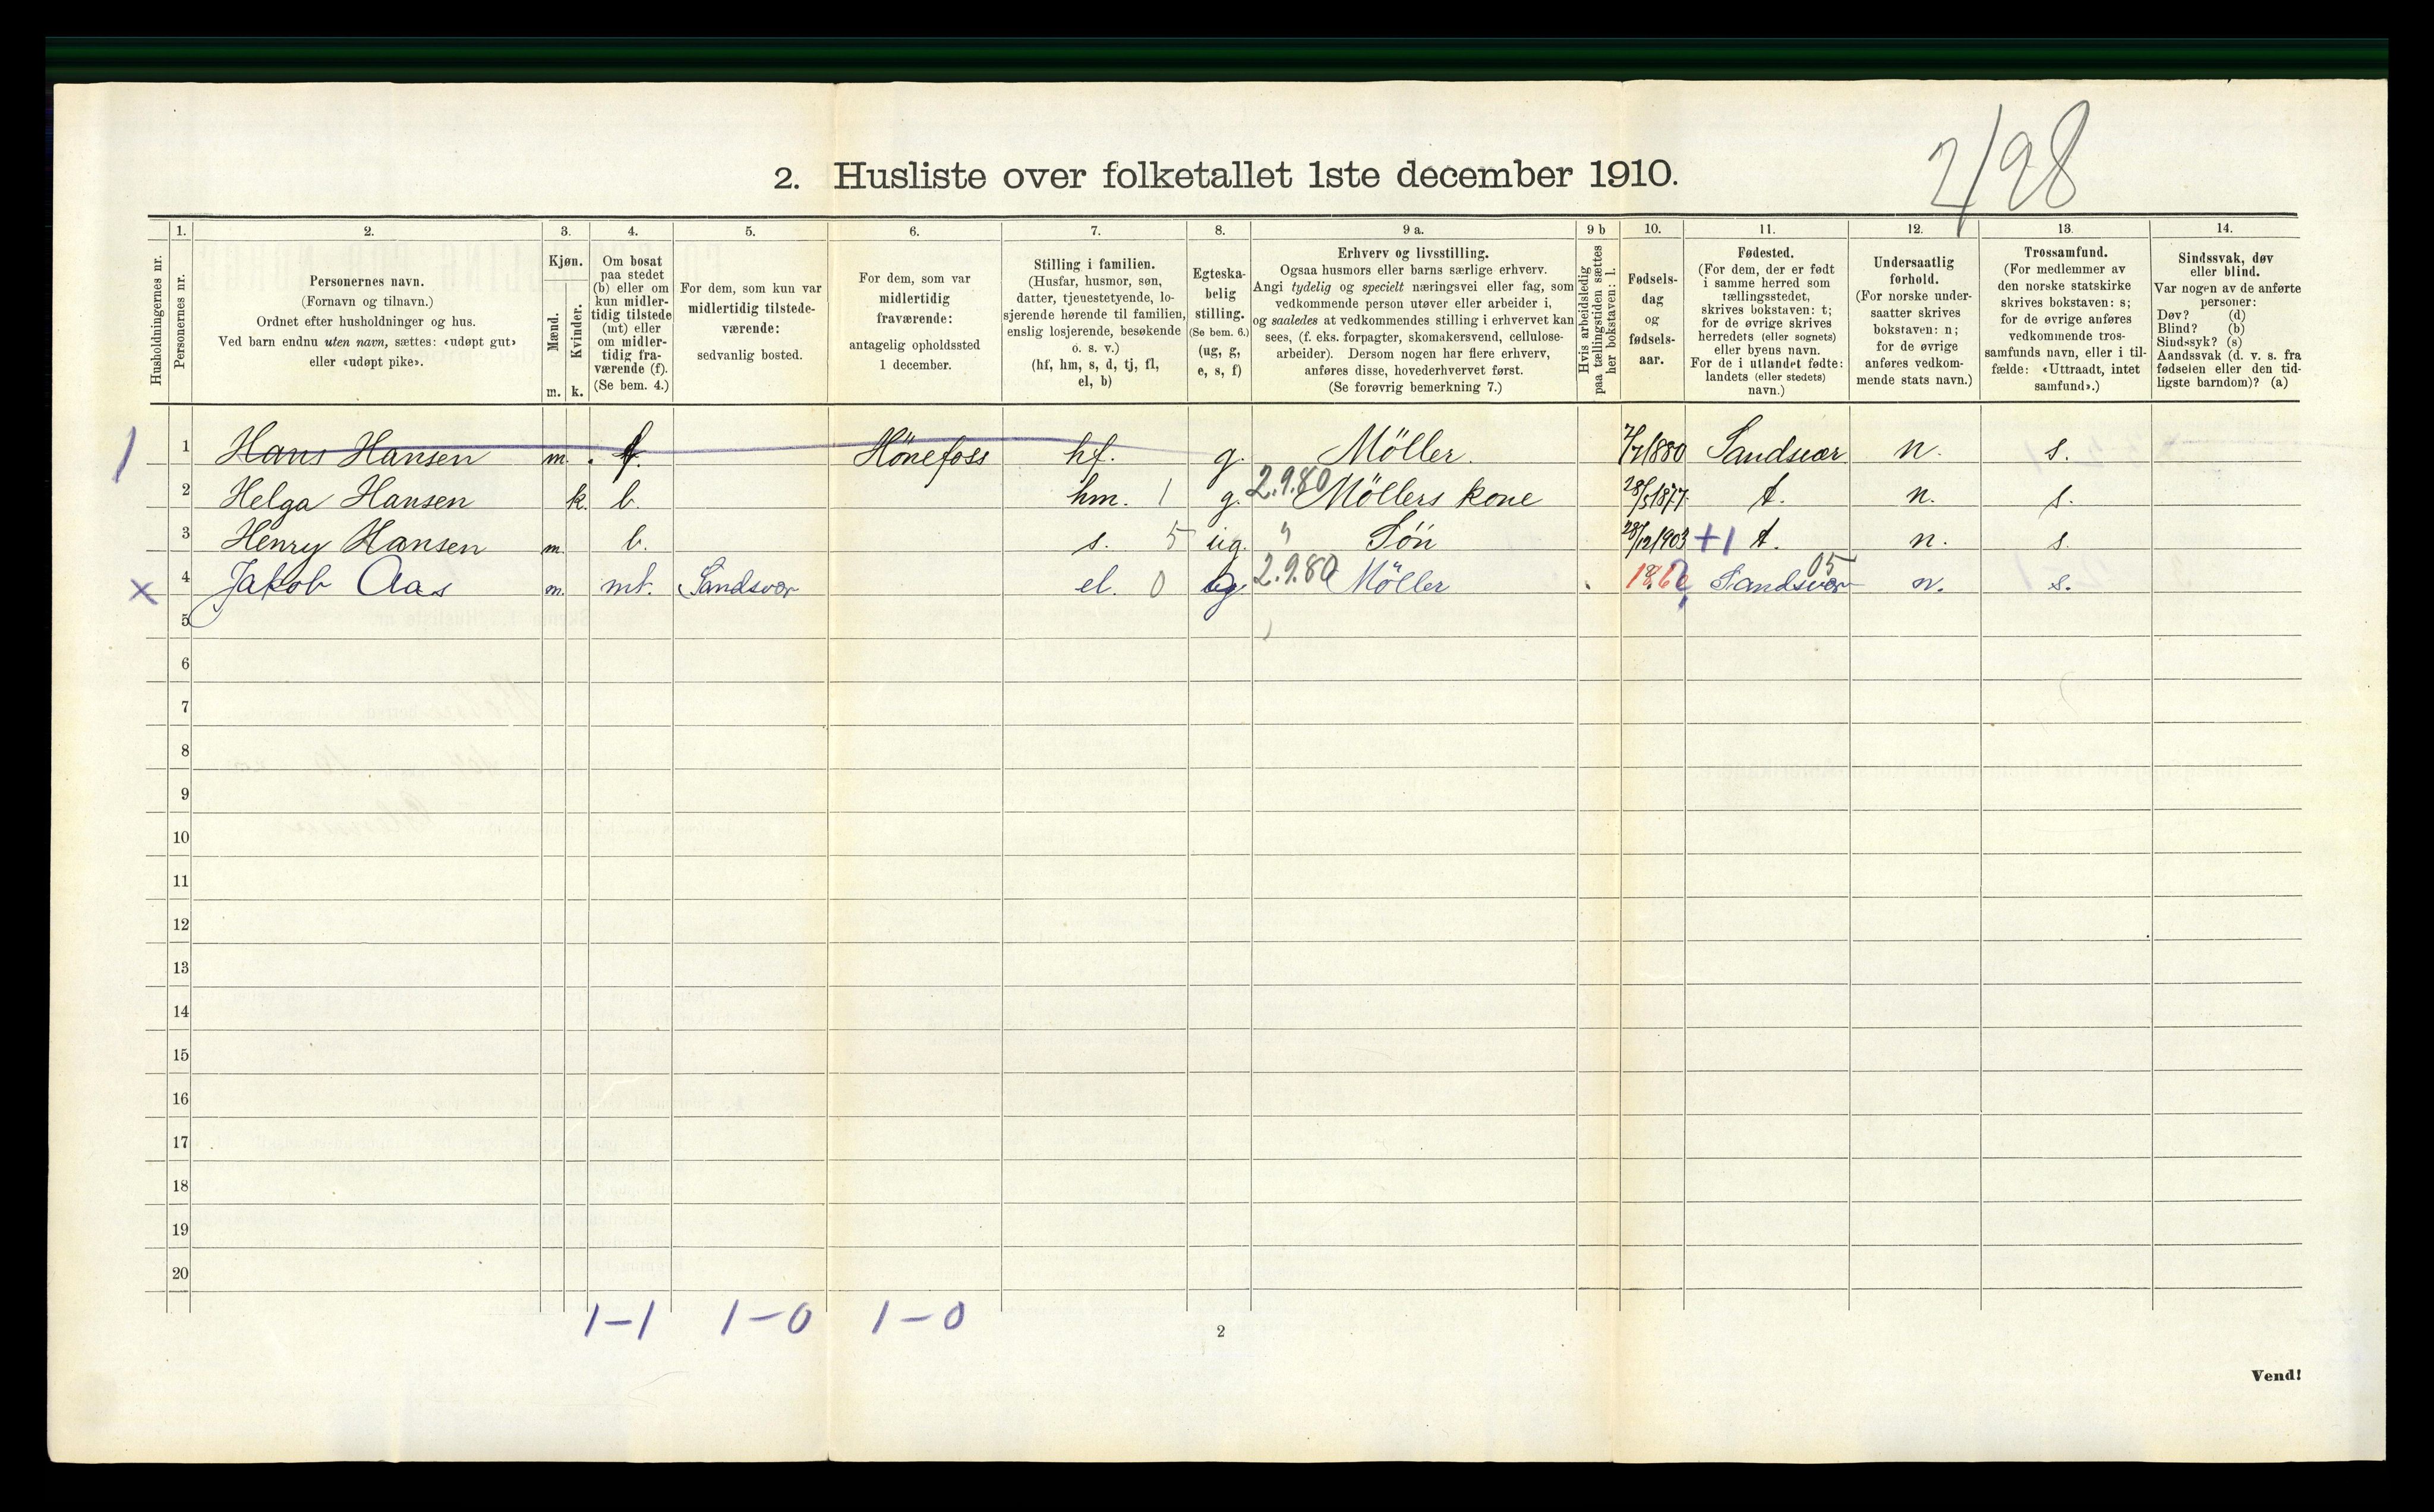 2/98
2. Husliste over folketallet 1ste december 1910.
Husholdningernes nr.
1.
Personernes nr.
2.
Personernes navn.
(Fornavn og tilnavn.)
Ordnet efter husholdninger og hus.
Ved barn endnu uten navn, sættes: «udøpt gut»
eller «udøpt pike».
3.
Kjøn.
Mænd.
Kvinder.
m. k.
4.
Om bosat
paa stedet
(b) eller om
kun midler-
tidig tilstede
(mt) eller
om midler-
tidig fra-
værende (f).
(Se bem. 4.)
5.
For dem, som kun var
midlertidig tilstede-
værende:
sedvanlig bosted.
6.
For dem, som var
midlertidig
fraværende:
antagelig opholdssted
1 december.
7.
Stilling i familien.
(Husfar, husmor, søn,
datter, tjenestetyende, lo-
sjerende hørende til familien,
enslig losjerende, besøkende
o. s. v.)
(hf, hm, s, d, tj, fl,
el, b)
8.
Egteska-
belig
stilling.
(Se bem. 6.)
(ug, g,
e, s, f)
9 a.
Erhverv og livsstilling.
Ogsaa husmors eller barns særlige erhverv.
Angi tydelig og specielt næringsvei eller fag, som
vedkommende person utøver eller arbeider i,
og saaledes at vedkommendes stilling i erhvervet kan
sees, (f. eks. forpagter, skomakersvend, cellulose-
arbeider). Dersom nogen har flere erhverv,
anføres disse, hovederhvervet først.
(Se forøvrig bemerkning 7.)
9 b
Hvis arbeidsledig
paa tællingstiden sættes
her bokstaven: l.
10.
Fødsels-
dag
og
fødsels-
aar.
11.
Fødested.
(For dem, der er født
i samme herred som
tællingsstedet,
skrives bokstaven: t;
for de øvrige skrives
herredets (eller sognets)
eller byens navn.
For de i utlandet fødte:
landets (eller stedets)
navn.)
12.
Undersaatlig
forhold.
(For norske under-
saatter skrives
bokstaven: n;
for de øvrige
anføres vedkom-
mende stats navn.)
13.
Trossamfund.
(For medlemmer av
den norske statskirke
skrives bokstaven: s;
for de øvrige anføres
vedkommende tros-
samfunds navn, eller i til-
fælde: «Uttraadt, intet
samfund».)
14.
Sindssvak, døv
eller blind.
Var nogen av de anførte
personer:
Døv? (d)
Blind? (b)
Sindssyk? (s)
Aandssvak (d. v. s. fra
fødselen eller den tid-
ligste barndom)? (a)
1 1 Hans Hansen m. f. Hönefoss hf. g. Möller. 1880 Sandsvær n. s.
2 Helga Hansen k. b. hm. 1 g. 2.9.80 Möllers kone 28/5 1877 t. n. s.
3 Henry Hansen m. b. s. 5 ug. " Sön 28/12 1903 +1 t. n. s.
x 4 Jakob Aas m. mt. Sandsvær el. 0 2.9.80 Möller Sandsvær 05 n. s.
5
6
7
8
9
10
11
12
13
14
15
16
17
18
19
20
1-1 1-0 1-0
2
Vend!